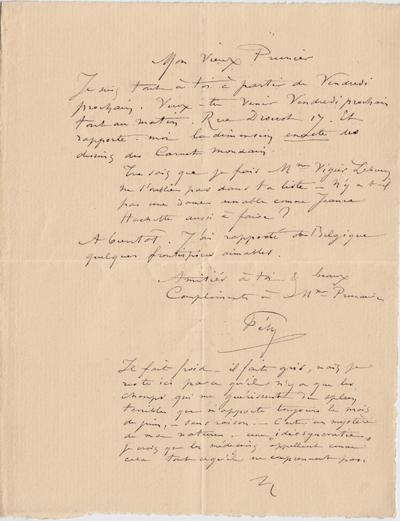 Mon Vieux Prunier
Je suis tout à toi à partir de Vendredi
prochain. Veux-tu venir Vendredi prochain
tout au matin. Rue Drouot 17. Et
rapporte-moi la dimension exacte des
dessins des Carnet mondain.
Tu sais que je fais Mme Vigée Lebrun
ne l'oublie pas dans ta liste — n'y a-t-il
pas une dame comme Jeanne
Hachette aussi à faire ?
A bientot. J'ai rapporté de Belgique
quelques frontispices aimables.
Amitiés à toi & beaux
Compliments à Mme Prunier
Fély
Il fait froid — il fait gris, mais je
reste ici parce qu'il n'y a que les
champs qui me guérissent du spleen
terrible que m'apporte toujours le mois
de juin, — sans raison. — C'est un mystère
de ma nature. — une "idiosyncratie"
je crois que les médecins appellent comme
cela tout ce qu'ils ne comprennent pas.